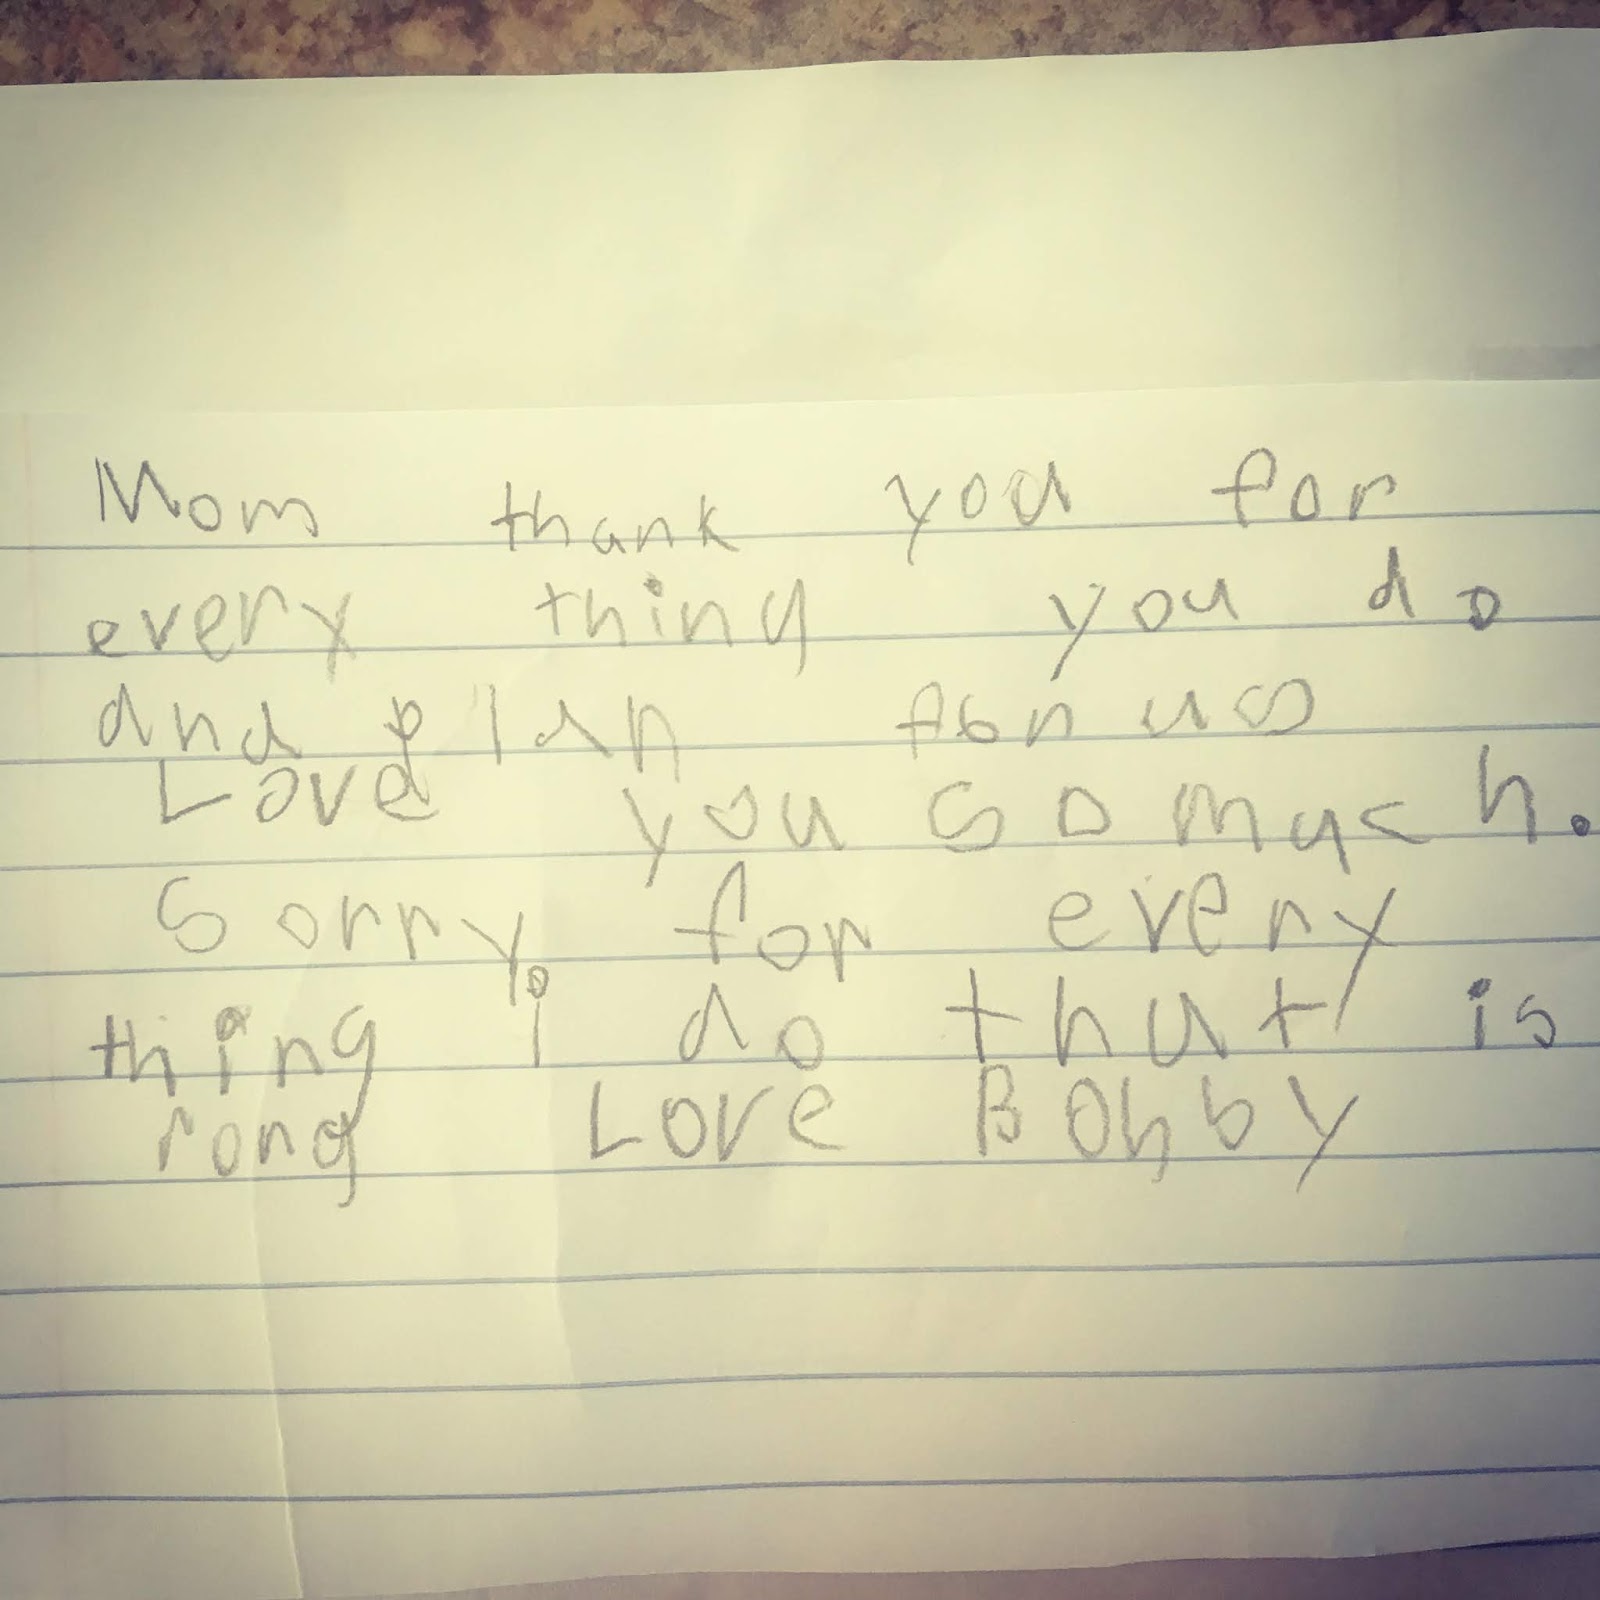 Mom thank you for
every thing you do
and plan for us
Love you so much.
Sorry for every
thing i do that is
rong Love Bobby